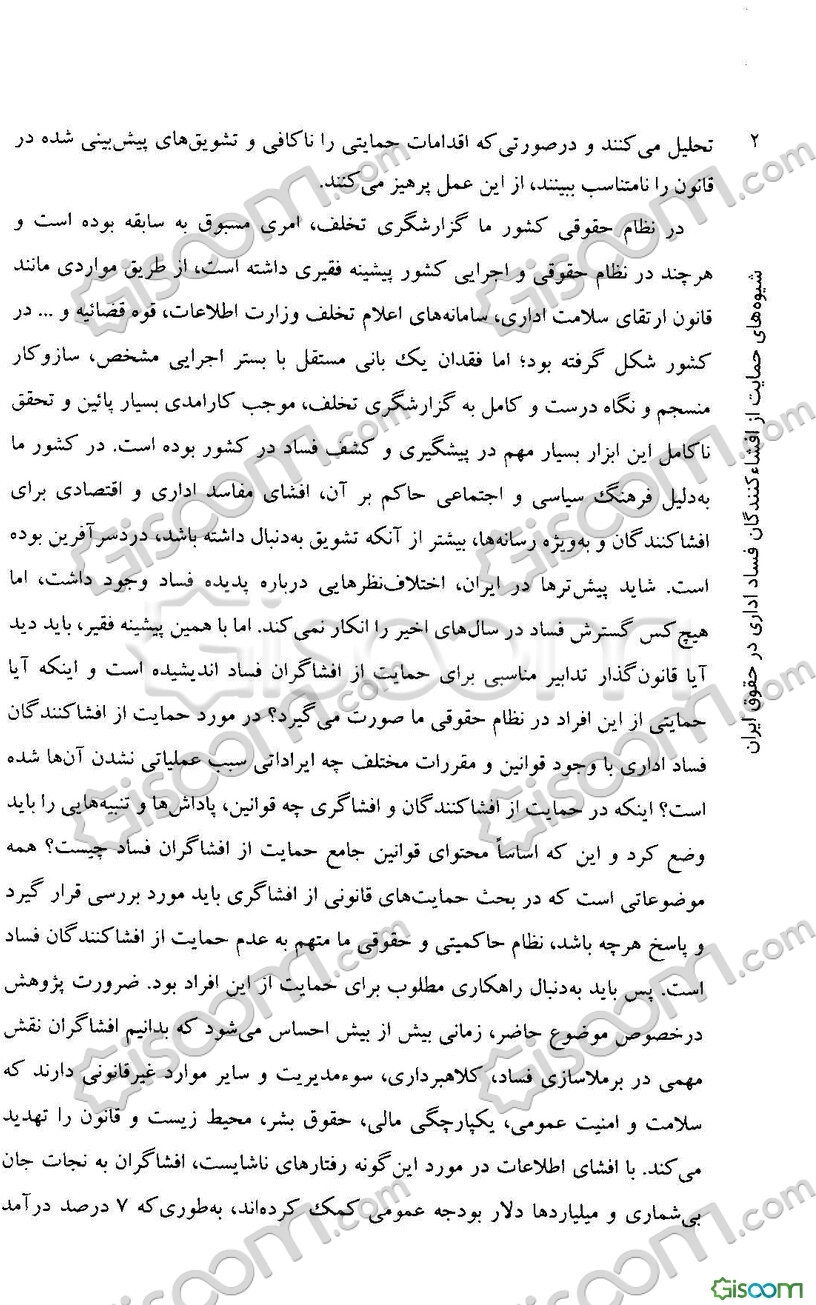 ۲
تحلیل می‌کنند و درصورتی‌که اقدامات حمایتی را ناکافی و تشویق‌های پیش‌بینی شده در
قانون را نامتناسب ببینند، از این عمل پرهیز می‌کنند.
در نظام حقوقی کشور ما گزارشگری تخلف، امری مسبوق به سابقه بوده است و
هرچند در نظام حقوقی و اجرایی کشور پیشینه فقیری داشته است، از طریق مواردی مانند
قانون ارتقای سلامت اداری، سامانه‌های اعلام تخلف وزارت اطلاعات، قوه قضائیه و ... در
کشور شکل گرفته بود؛ اما فقدان یک بانی مستقل با بستر اجرایی مشخص، سازوکار
منسجم و نگاه درست و کامل به گزارشگری تخلف، موجب کارامدی بسیار پائین و تحقق
ناکامل این ابزار بسیار مهم در پیشگیری و کشف فساد در کشور بوده است. در کشور ما
به‌دلیل فرهنگ سیاسی و اجتماعی حاکم بر آن، افشای مفاسد اداری و اقتصادی برای
افشاکنندگان و به‌ویژه رسانه‌ها، بیشتر از آنکه تشویق به‌دنبال داشته باشد، دردسرآفرین بوده
است. شاید پیش‌ترها در ایران، اختلاف‌نظرهایی درباره پدیده فساد وجود داشت، اما
هیچ‌کس گسترش فساد در سال‌های اخیر را انکار نمی‌کند. اما با همین پیشینه فقیر، باید دید
آیا قانون‌گذار تدابیر مناسبی برای حمایت از افشاگران فساد اندیشیده است و اینکه آیا
حمایتی از این افراد در نظام حقوقی ما صورت می‌گیرد؟ در مورد حمایت از افشاکنندگان
فساد اداری با وجود قوانین و مقررات مختلف چه ایراداتی سبب عملیاتی نشدن آن‌ها شده
است؟ اینکه در حمایت از افشاکنندگان و افشاگری چه قوانین، پاداش‌ها و تنبیه‌هایی را باید
وضع کرد و این که اساساً محتوای قوانین جامع حمایت از افشاگران فساد چیست؟ همه
موضوعاتی است که در بحث حمایت‌های قانونی از افشاگری باید مورد بررسی قرار گیرد
و پاسخ هرچه باشد، نظام حاکمیتی و حقوقی ما متهم به عدم حمایت از افشاکنندگان فساد
است. پس باید به‌دنبال راهکاری مطلوب برای حمایت از این افراد بود. ضرورت پژوهش
درخصوص موضوع حاضر، زمانی بیش از بیش احساس می‌شود که بدانیم افشاگران نقش
مهمی در برملاسازی فساد، کلاهبرداری، سوءمدیریت و سایر موارد غیرقانونی دارند که
سلامت و امنیت عمومی، یکپارچگی مالی، حقوق بشر، محیط زیست و قانون را تهدید
می‌کند. با افشای اطلاعات در مورد این‌گونه رفتارهای ناشایست، افشاگران به نجات جان
بی‌شماری و میلیاردها دلار بودجه عمومی کمک کرده‌اند، به‌طوری‌که ۷ درصد درآمد
شیوه‌های حمایت از افشاءکنندگان فساد اداری در حقوق ایران
Gisoom